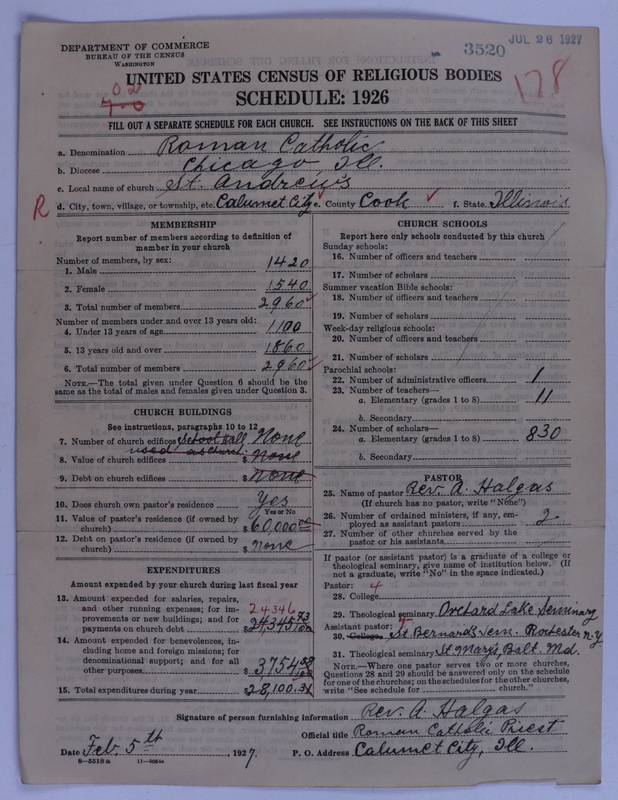 DEPARTMENT OF COMMERCE
BUREAU OF THE CENSUS
WASHINGTON
3520
JUL 26 1927
178
UNITED STATES CENSUS OF RELIGIOUS BODIES
SCHEDULE: 1926
FILL OUT A SEPARATE SCHEDULE FOR EACH CHURCH. SEE INSTRUCTIONS ON THE BACK OF THIS SHEET
a. Denomination Roman Catholic
b. Diocese Chicago Ill.
c. Local name of church St. Andrew's
R d. City, town, village, or township, etc. Calumet City e. County Cook f. State Illinois
MEMBERSHIP
Report number of members according to definition of
member in your church
Number of members, by sex:
1. Male 1420
2. Female 1540
3. Total number of members 2960
Number of members under and over 13 years old:
4. Under 13 years of age 1100
5. 13 years old and over 1860
6. Total number of members 2960
NOTE.—The total given under Question 6 should be
same as the total of males and females given under Question 3.
CHURCH BUILDINGS
See instructions, paragraphs 10 to 12
7. Number of church edifices School hall None
used as church
8. Value of church edifices $ None
9. Debt on church edifices $ None
10. Does church own pastor's residence Yes
Yes or No
11. Value of pastor's residence (if owned by
church) $ 60,000 00
12. Debt on pastor's residence (if owned by
church) $ none
EXPENDITURES
Amount expended by your church during last fiscal year
13. Amount expended for salaries, repairs,
and other running expenses; for im-
provements or new buildings; and for
payments on church debt $ 24,345 73/100
24346
14. Amount expended for benevolences, in-
cluding home and foreign missions; for
denominational support; and for all
other purposes $ 3754.58
15. Total expenditures during year $ 28,100.31
CHURCH SCHOOLS
Report here only schools conducted by this church
Sunday schools:
16. Number of officers and teachers
17. Number of scholars
Summer vacation Bible schools:
18. Number of officers and teachers
19. Number of scholars
Week-day religious schools:
20. Number of officers and teachers
21. Number of scholars
Parochial schools:
22. Number of administrative officers 1
23. Number of teachers—
a. Elementary (grades 1 to 8) 11
b. Secondary
24. Number of scholars—
a. Elementary (grades 1 to 8) 830
b. Secondary
PASTOR
25. Name of pastor Rev. A. Halgas
(If church has no pastor, write "None")
26. Number of ordained ministers, if any, em-
ployed as assistant pastors 2
27. Number of other churches served by the
pastor or his assistants
If pastor (or assistant pastor) is a graduate of a college or
theological seminary, give name of institution below. (If
not a graduate, write "No" in the space indicated.)
Pastor: 4
28. College
29. Theological seminary Orchard Lake Seminary
Assistant pastor: 4
30. College St Bernard's Sem. Rochester N.Y.
31. Theological seminary St Mary's Balt. Md.
NOTE.—Where one pastor serves two or more churches,
Questions 28 and 29 should be answered only on the schedule
for one of the churches; on the schedules for the other churches,
write "See schedule for church."
Signature of person furnishing information Rev. A Halgas
Official title Roman Catholic Priest
Date Feb. 5th, 1927. P. O. Address Calumet City, Ill.
8—5518a